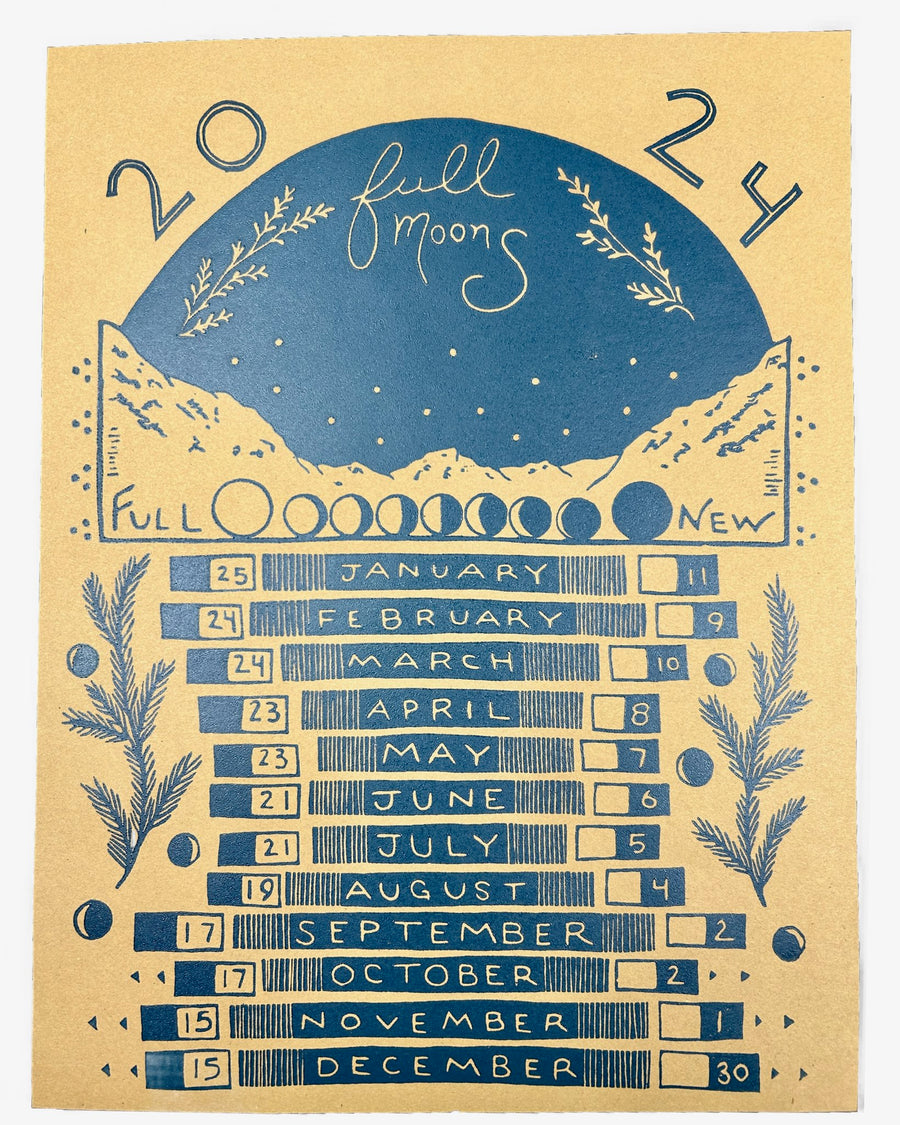 2024
full
moons
FULL NEW
25 JANUARY 11
24 FEBRUARY 9
24 MARCH 10
23 APRIL 8
23 MAY 7
21 JUNE 6
21 JULY 5
19 AUGUST 4
17 SEPTEMBER 2
17 OCTOBER 2
15 NOVEMBER 1
15 DECEMBER 30